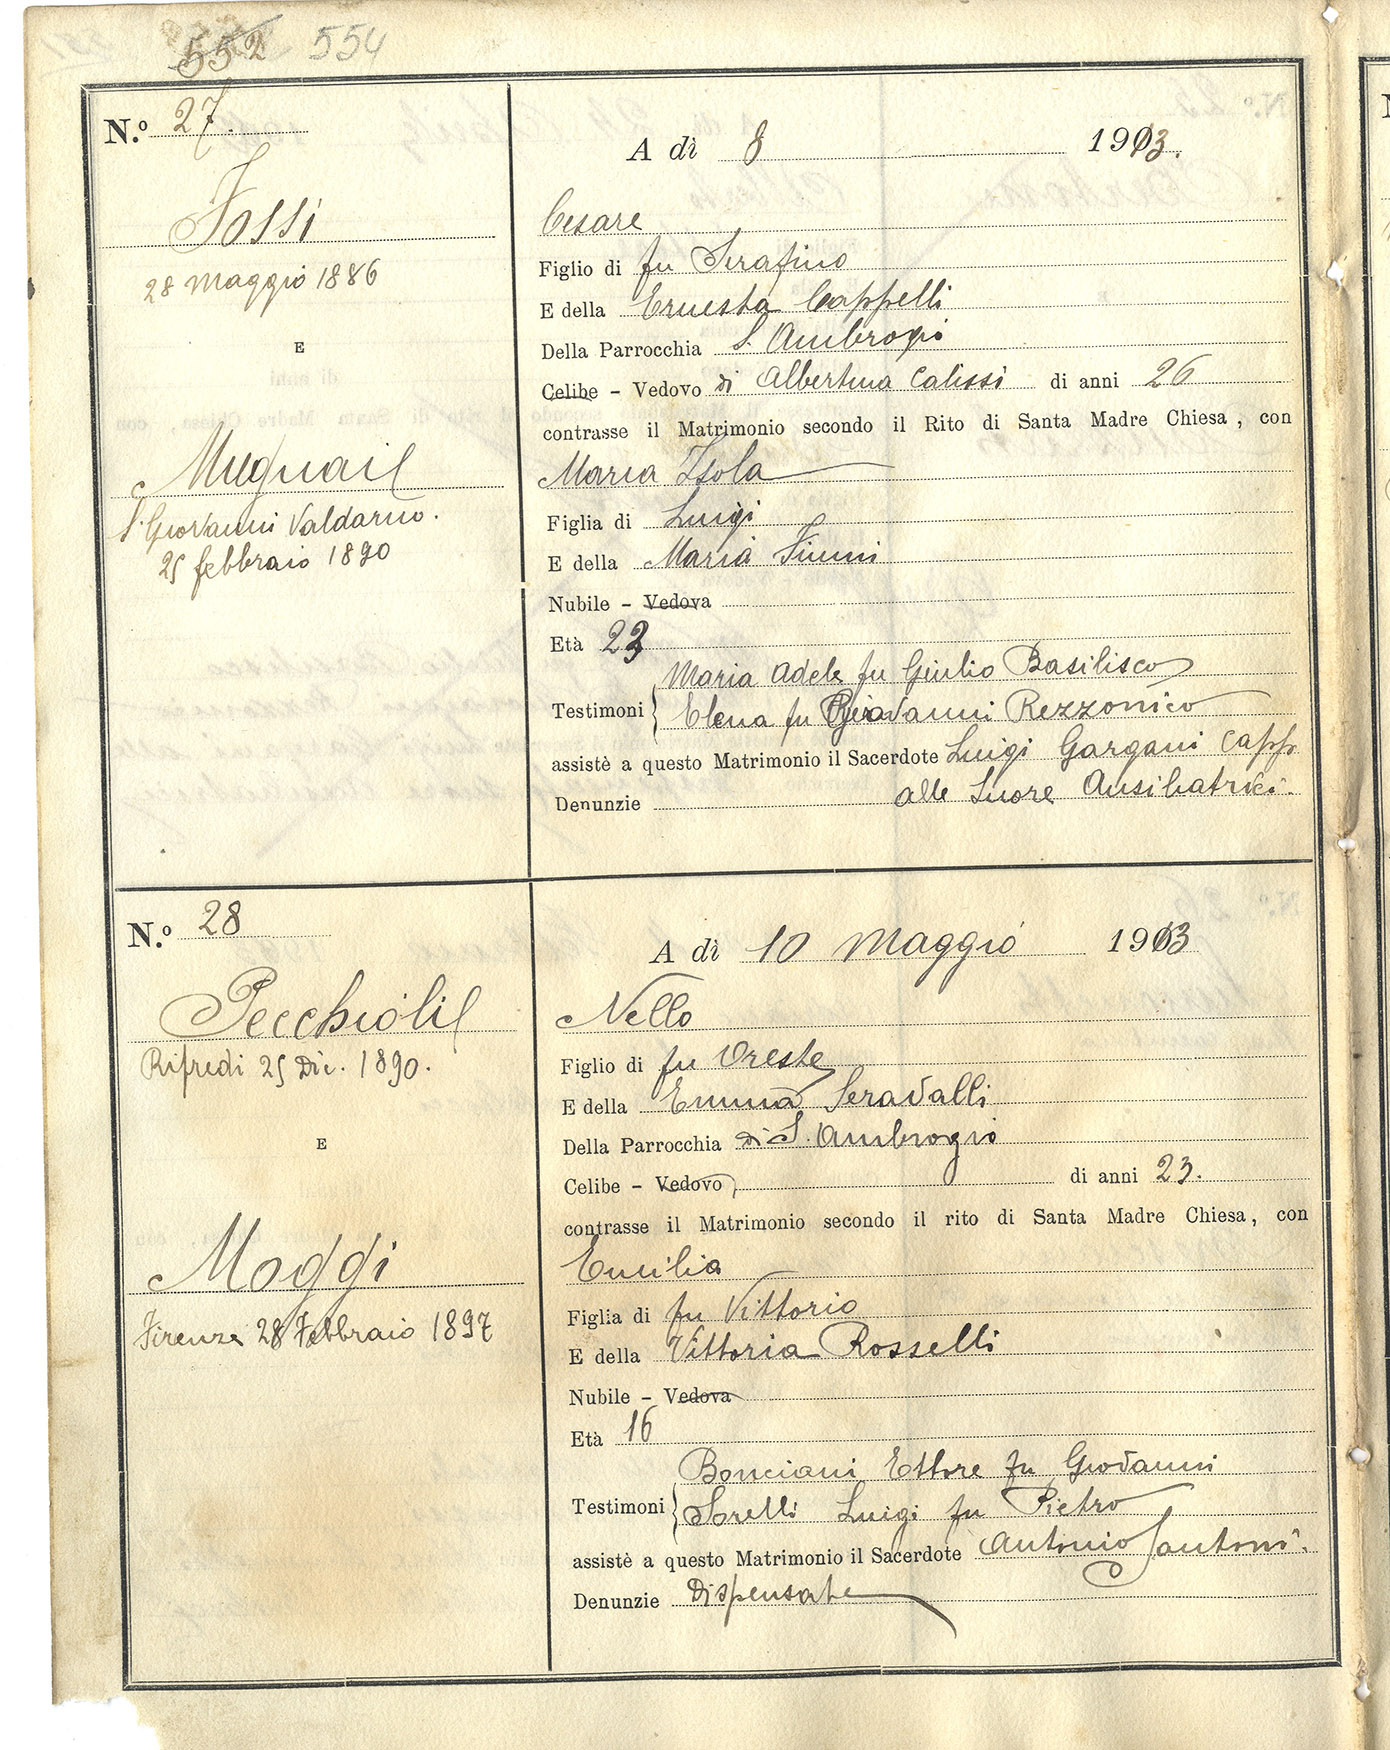 552 554
N.º 27.
Fossi
28 Maggio 1886
E
Mugnai
S. Giovanni Valdarno.
25 febbraio 1890
A dì 8 1913.
Cesare
Figlio di fu Serafino
E della Ernesta Cappelli
Della Parrocchia S. Ambrogio
Celibe - Vedovo di Albertina Calissi di anni 26
contrasse il Matrimonio secondo il Rito di Santa Madre Chiesa, con
Maria Isola
Figlia di Luigi
E della Maria
Nubile - Vedova
Età 23
Testimoni { Maria Adele fu Giulio Basilisco
Elena fu Giovanni Rezzonico
assistè a questo Matrimonio il Sacerdote Luigi Gargani Capp.
Denunzie alle Suore
N.º 28
Pecchioli
Rifredi 25 Dic. 1890.
E
Moggi
Firenze 28 Febbraio 1897
A dì 10 Maggio 1913
Nello
Figlio di fu Oreste
E della Emma Seravalli
Della Parrocchia di S. Ambrogio
Celibe - Vedovo, di anni 23.
contrasse il Matrimonio secondo il rito di Santa Madre Chiesa, con
Emilia
Figlia di fu Vittorio
E della Vittoria Rosselli
Nubile - Vedova
Età 16
Testimoni { Bonciani Ettore fu Giovanni
Sorelli Luigi fu Pietro
assistè a questo Matrimonio il Sacerdote Antonio Santoni.
Denunzie Dispensate